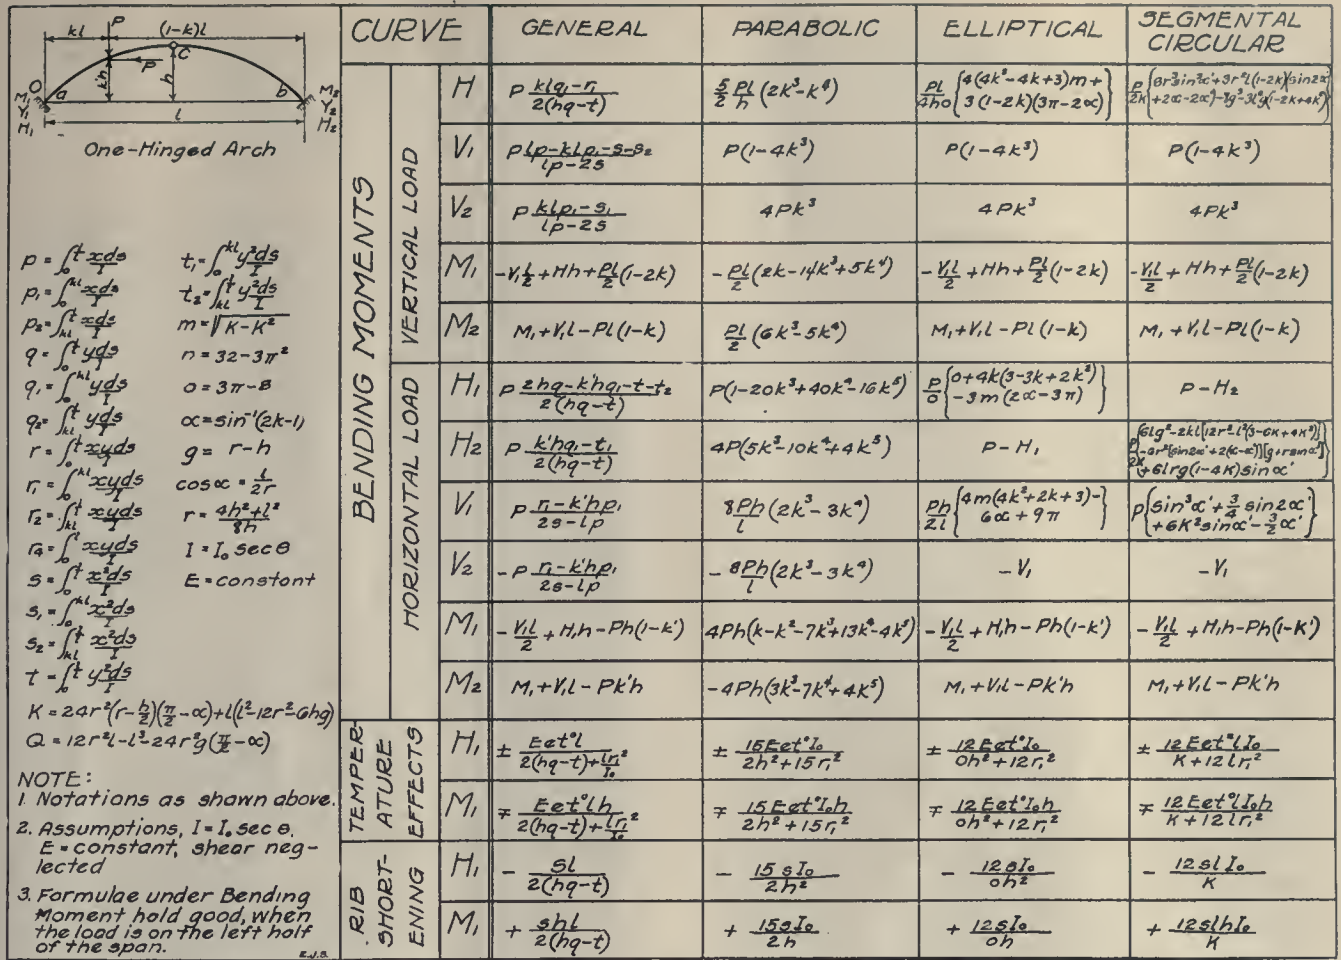 kl (1-k)l
P
C
P
k'h h
O a b
M₁ V₁ H₁
M₂ V₂ H₂
l
One-Hinged Arch
p = ∫₀^t xds/I
p₁ = ∫₀^kl xds/I
p₂ = ∫kl^t xds/I
q = ∫₀^t yds/I
q₁ = ∫₀^kl yds/I
q₂ = ∫kl^t yds/I
r = ∫₀^t xyds/I
r₁ = ∫₀^kl xyds/I
r₂ = ∫kl^t xyds/I
r₄ = ∫₀^l xyds/I
s = ∫₀^t x²ds/I
s₁ = ∫₀^kl x²ds/I
s₂ = ∫kl^t x²ds/I
t = ∫₀^t y²ds/I
t₁ = ∫₀^kl y²ds/I
t₂ = ∫kl^t y²ds/I
m = √K-K²
n = 32-3π²
o = 3π-8
α = sin⁻¹(2k-1)
g = r-h
cosα = l/2r
r = 4h²+l²/8h
I = I₀ sec θ
E = constant
K = 24r²(r-h/2)(π/2-α)+l(l²-12r²-6hg)
Q = 12r²l-l³-24r²g(π/2-α)
NOTE:
1. Notations as shown above.
2. Assumptions, I = I₀ sec θ.
E = constant, shear neg-
lected
3. Formulae under Bending
Moment hold good, when
the load is on the left half
of the span.
E.J.S.
CURVE GENERAL PARABOLIC ELLIPTICAL SEGMENTAL CIRCULAR
BENDING MOMENTS
VERTICAL LOAD
H P klq₁-r₁/2(hq-t) 5/2 Pl/h (2k³-k⁴) Pl/4ho {4(4k²-4k+3)m + 3(1-2k)(3π-2α)}
V₁ P lp-klp₁-s-s₂/lp-2s P(1-4k³) P(1-4k³) P(1-4k³)
V₂ P klp₁-s₁/lp-2s 4Pk³ 4Pk³ 4Pk³
M₁ -V₁l/2 + Hh + Pl/2 (1-2k) -Pl/2 (2k-14k³+5k⁴) -V₁l/2 + Hh + Pl/2 (1-2k) -V₁l/2 + Hh + Pl/2 (1-2k)
M₂ M₁+V₁l-Pl(1-k) Pl/2 (6k³-5k⁴) M₁+V₁l-Pl(1-k) M₁+V₁l-Pl(1-k)
HORIZONTAL LOAD
H₁ P 2hq-k'hq₁-t-t₂/2(hq-t) P(1-20k³+40k⁴-16k⁵) P/o {o+4k(3-3k+2k²) -3m(2α-3π)} P-H₂
H₂ P k'hq₁-t₁/2(hq-t) 4P(5k³-10k⁴+4k⁵) P-H₁
V₁ P r₁-k'hp₁/2s-lp 8Ph/l (2k³-3k⁴) Ph/2l {4m(4k²+2k+3)- 6α+9π} P{sin³α'+3/4 sin2α' +6K²sinα'-3/2 α'}
V₂ -P r₁-k'hp₁/2s-lp -8Ph/l (2k³-3k⁴) -V₁ -V₁
M₁ -V₁l/2 + H₁h-Ph(1-k') 4Ph(k-k²-7k³+13k⁴-4k⁵) -V₁l/2 + H₁h-Ph(1-k') -V₁l/2 + H₁h-Ph(1-K')
M₂ M₁+V₁l-Pk'h -4Ph(3k³-7k⁴+4K⁵) M₁+V₁l-Pk'h M₁+V₁l-Pk'h
TEMPER-
ATURE
EFFECTS
H₁ ± Eet°l/2(hq-t)+lr₁²/I₀ ± 15Eet°I₀/2h²+15r₁² ± 12Eet°I₀/oh²+12r₁² ± 12Eet°lI₀/K+12lr₁²
M₁ ∓ Eet°lh/2(hq-t)+lr₁²/I₀ ∓ 15Eet°I₀h/2h²+15r₁² ∓ 12Eet°I₀h/oh²+12r₁² ∓ 12Eet°lI₀h/K+12lr₁²
RIB
SHORT-
ENING
H₁ - sl/2(hq-t) - 15sI₀/2h² - 12sI₀/oh² - 12slI₀/K
M₁ + shl/2(hq-t) + 15sI₀/2h + 12sI₀/oh + 12slhI₀/K